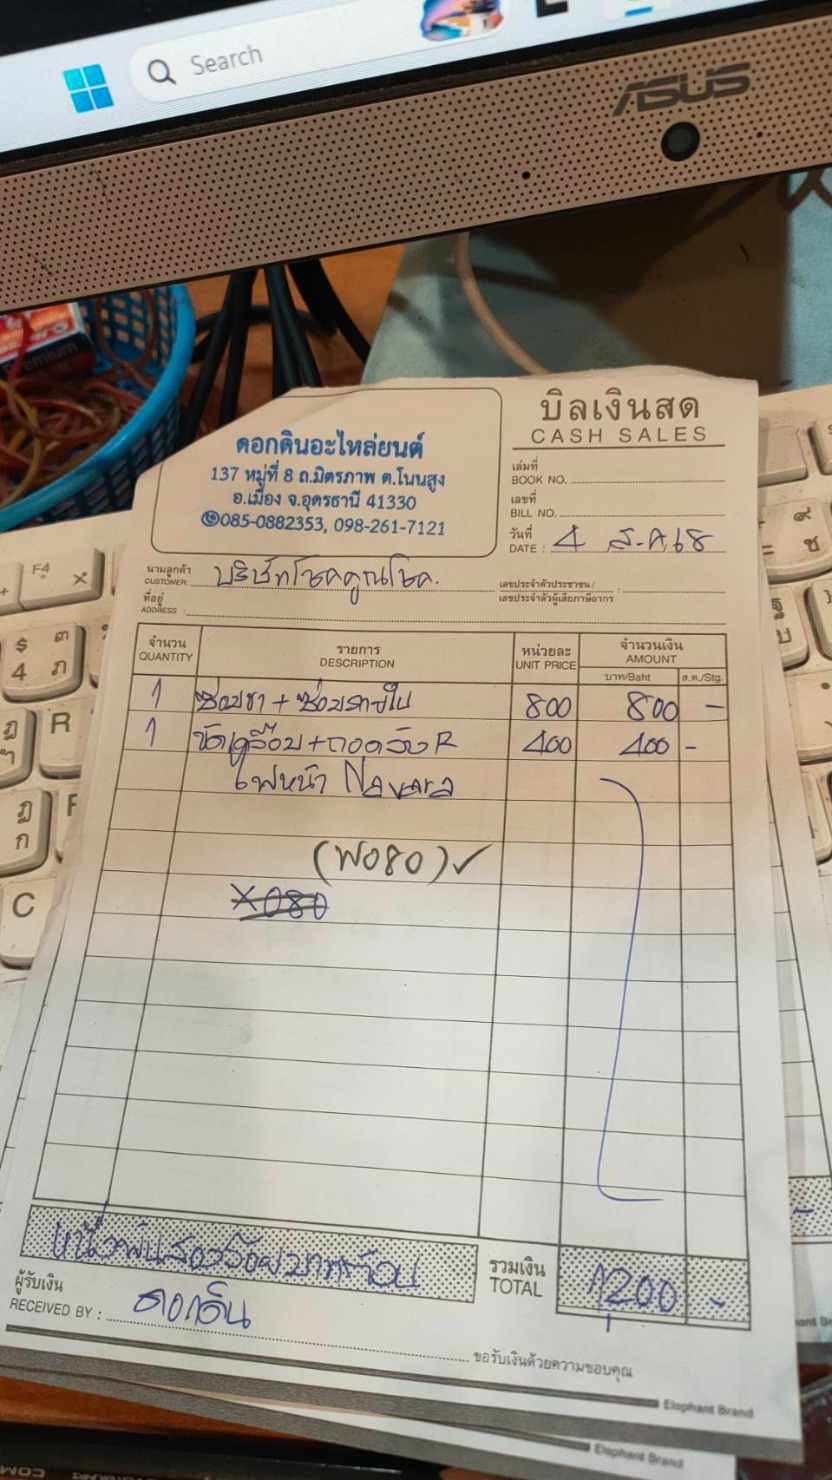 Search
ASUS
บิลเงินสด
CASH SALES
ดอกดินอะไหล่ยนต์
137 หมู่ที่ 8 ถ.มิตรภาพ ต.โนนสูง
อ.เมือง จ.อุดรธานี 41330
085-0882353, 098-261-7121
เล่มที่
BOOK NO.
เลขที่
BILL NO.
วันที่
DATE : 4 ส.ค. 68
นามลูกค้า
CUSTOMER: บริษัทโชคคูณโชค.
เลขประจำตัวประชาชน/
เลขประจำตัวผู้เสียภาษีอากร :
ที่อยู่
ADDRESS :
จำนวน รายการ หน่วยละ จำนวนเงิน
QUANTITY DESCRIPTION UNIT PRICE AMOUNT
บาท/Baht ส.ต./Stg.
1 ซ่อมขา + ซ่อม 800 800 -
1 ขัดเคลือบ+ถอด R 400 400 -
ไฟหน้า Navara
(ฟ080) ✓
X080
หนึ่งพันสองร้อยบาทถ้วน
รวมเงิน
TOTAL 1200 -
ผู้รับเงิน
RECEIVED BY : ดอกดิน
ขอรับเงินด้วยความขอบคุณ
Elephant Brand
Elephant Brand
F4
$
4
R
F
C